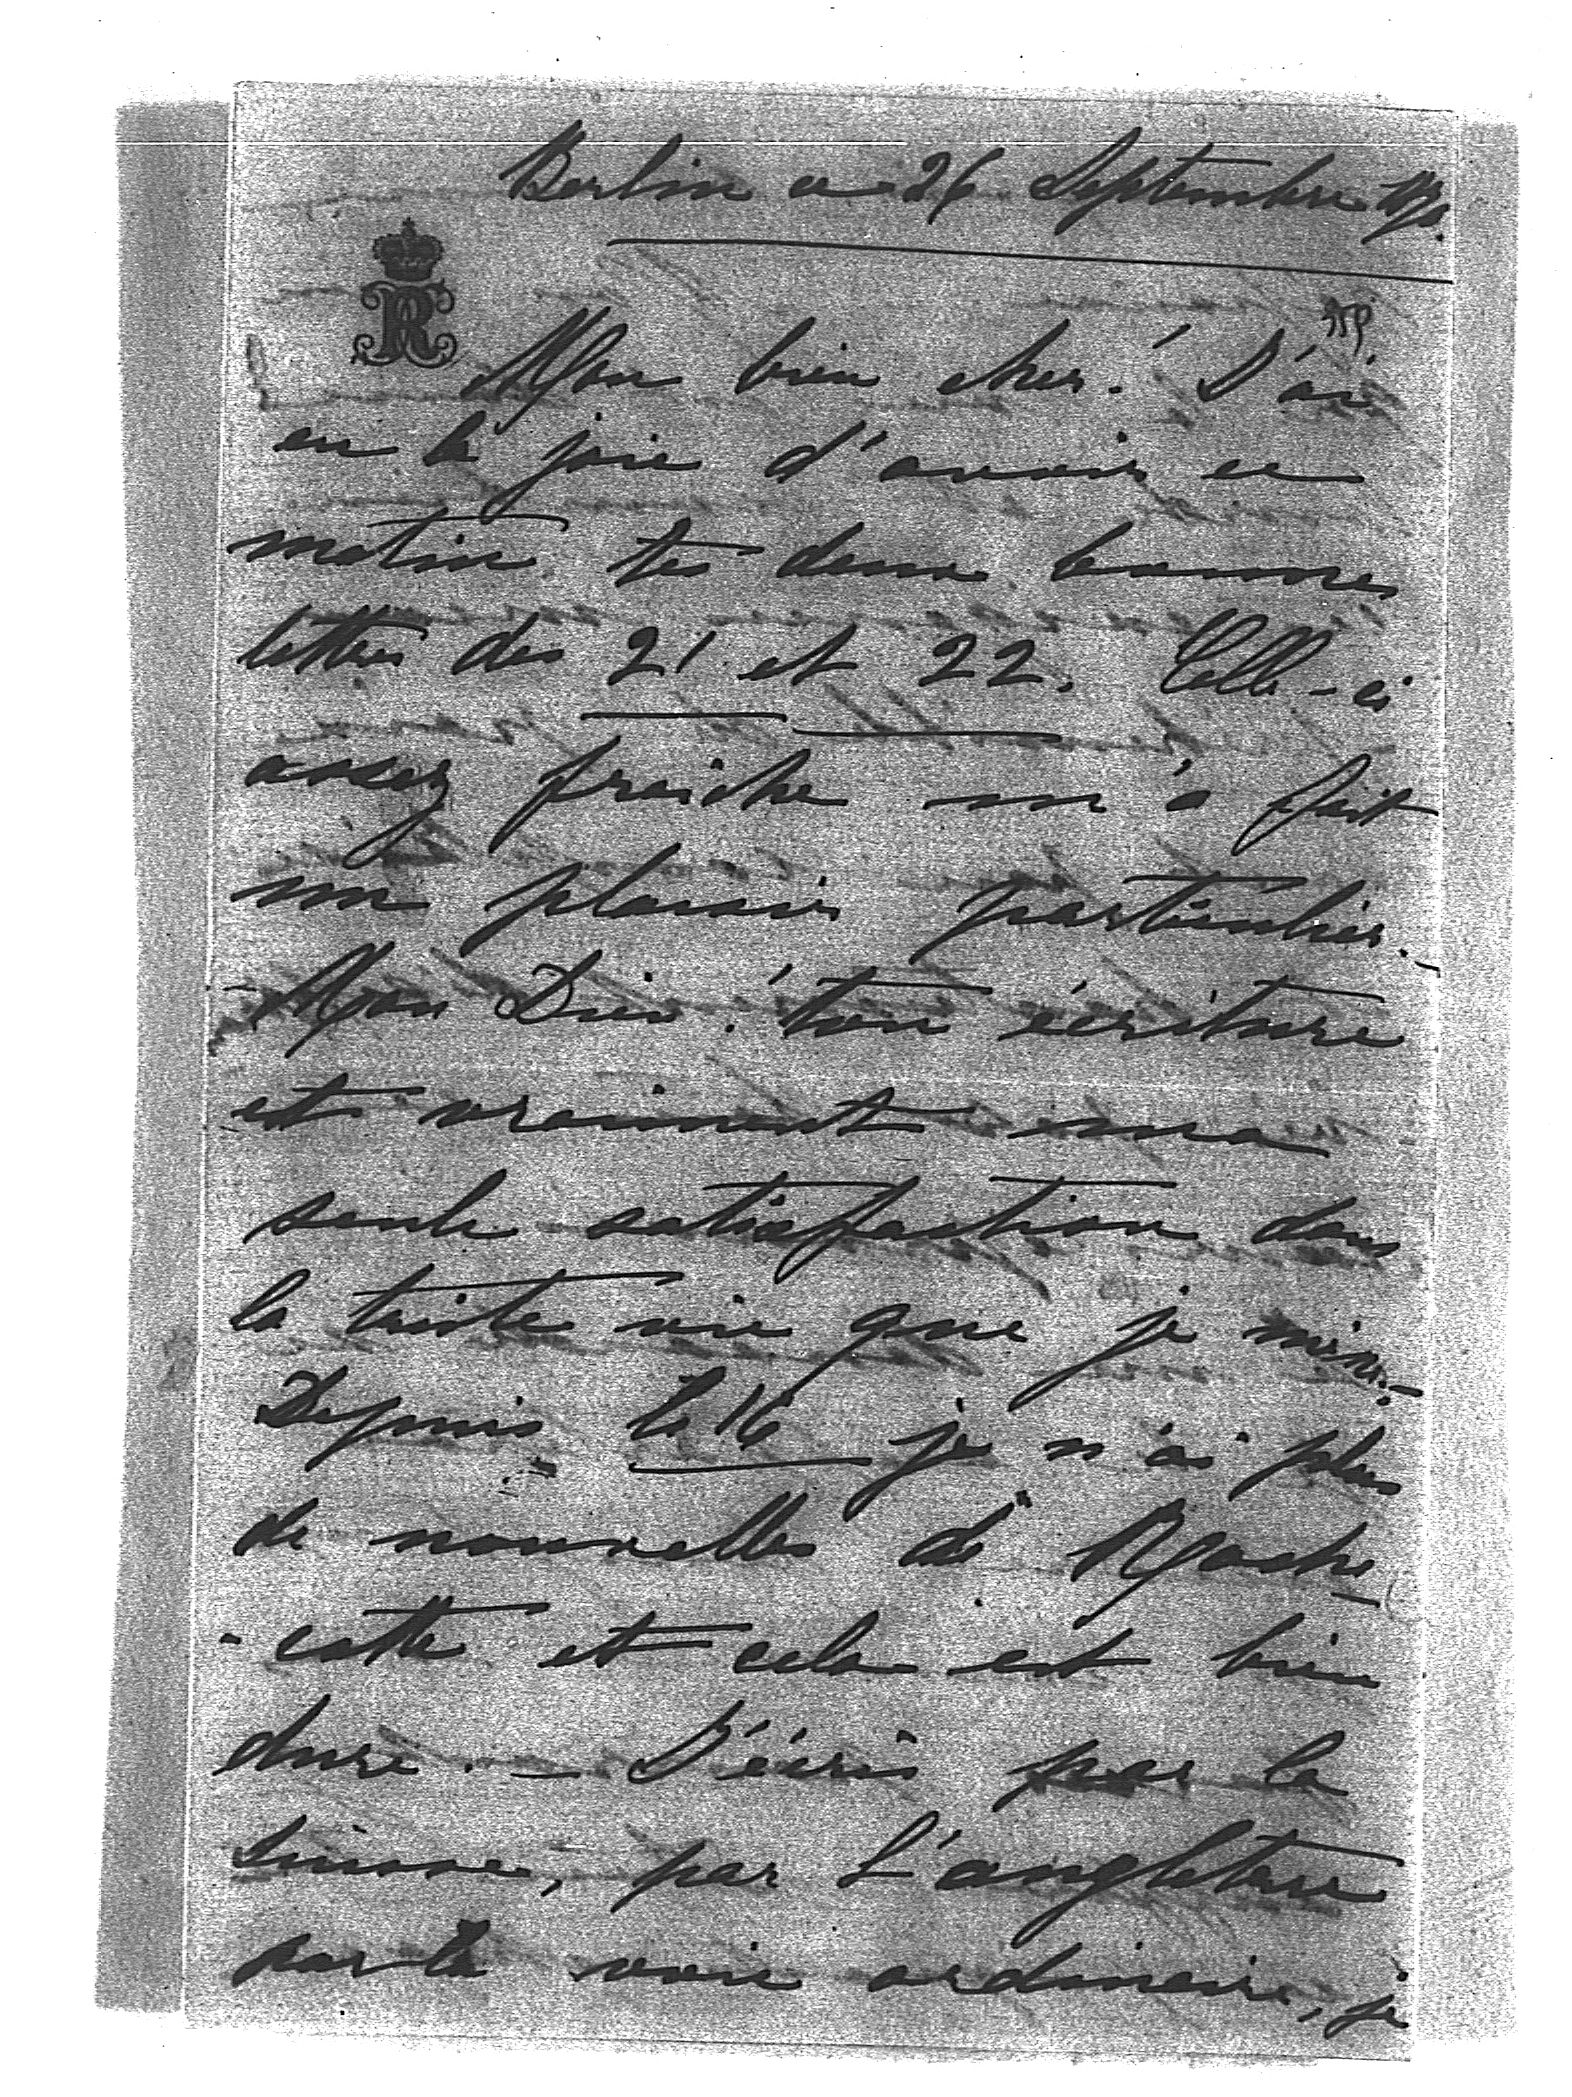 Berlin ce 26 Septembre 1870.
R
Mon bien cher! J'ai
eu la joie d'avoir ce
matin tes deux bonnes
lettres des 21 et 22. Celle-ci
assez fraiche m'a fait
un plaisir particulier.
Mon Dieu! ton écriture
est vraiment ma
seule satisfaction dans
la triste vie que je mène.
Depuis le 16 je n'ai plus
de nouvelles de Roche
-cotte et cela est bien
dure. – J'écris par la
Suisse, par l'angleterre
par la voie ordinaire, je